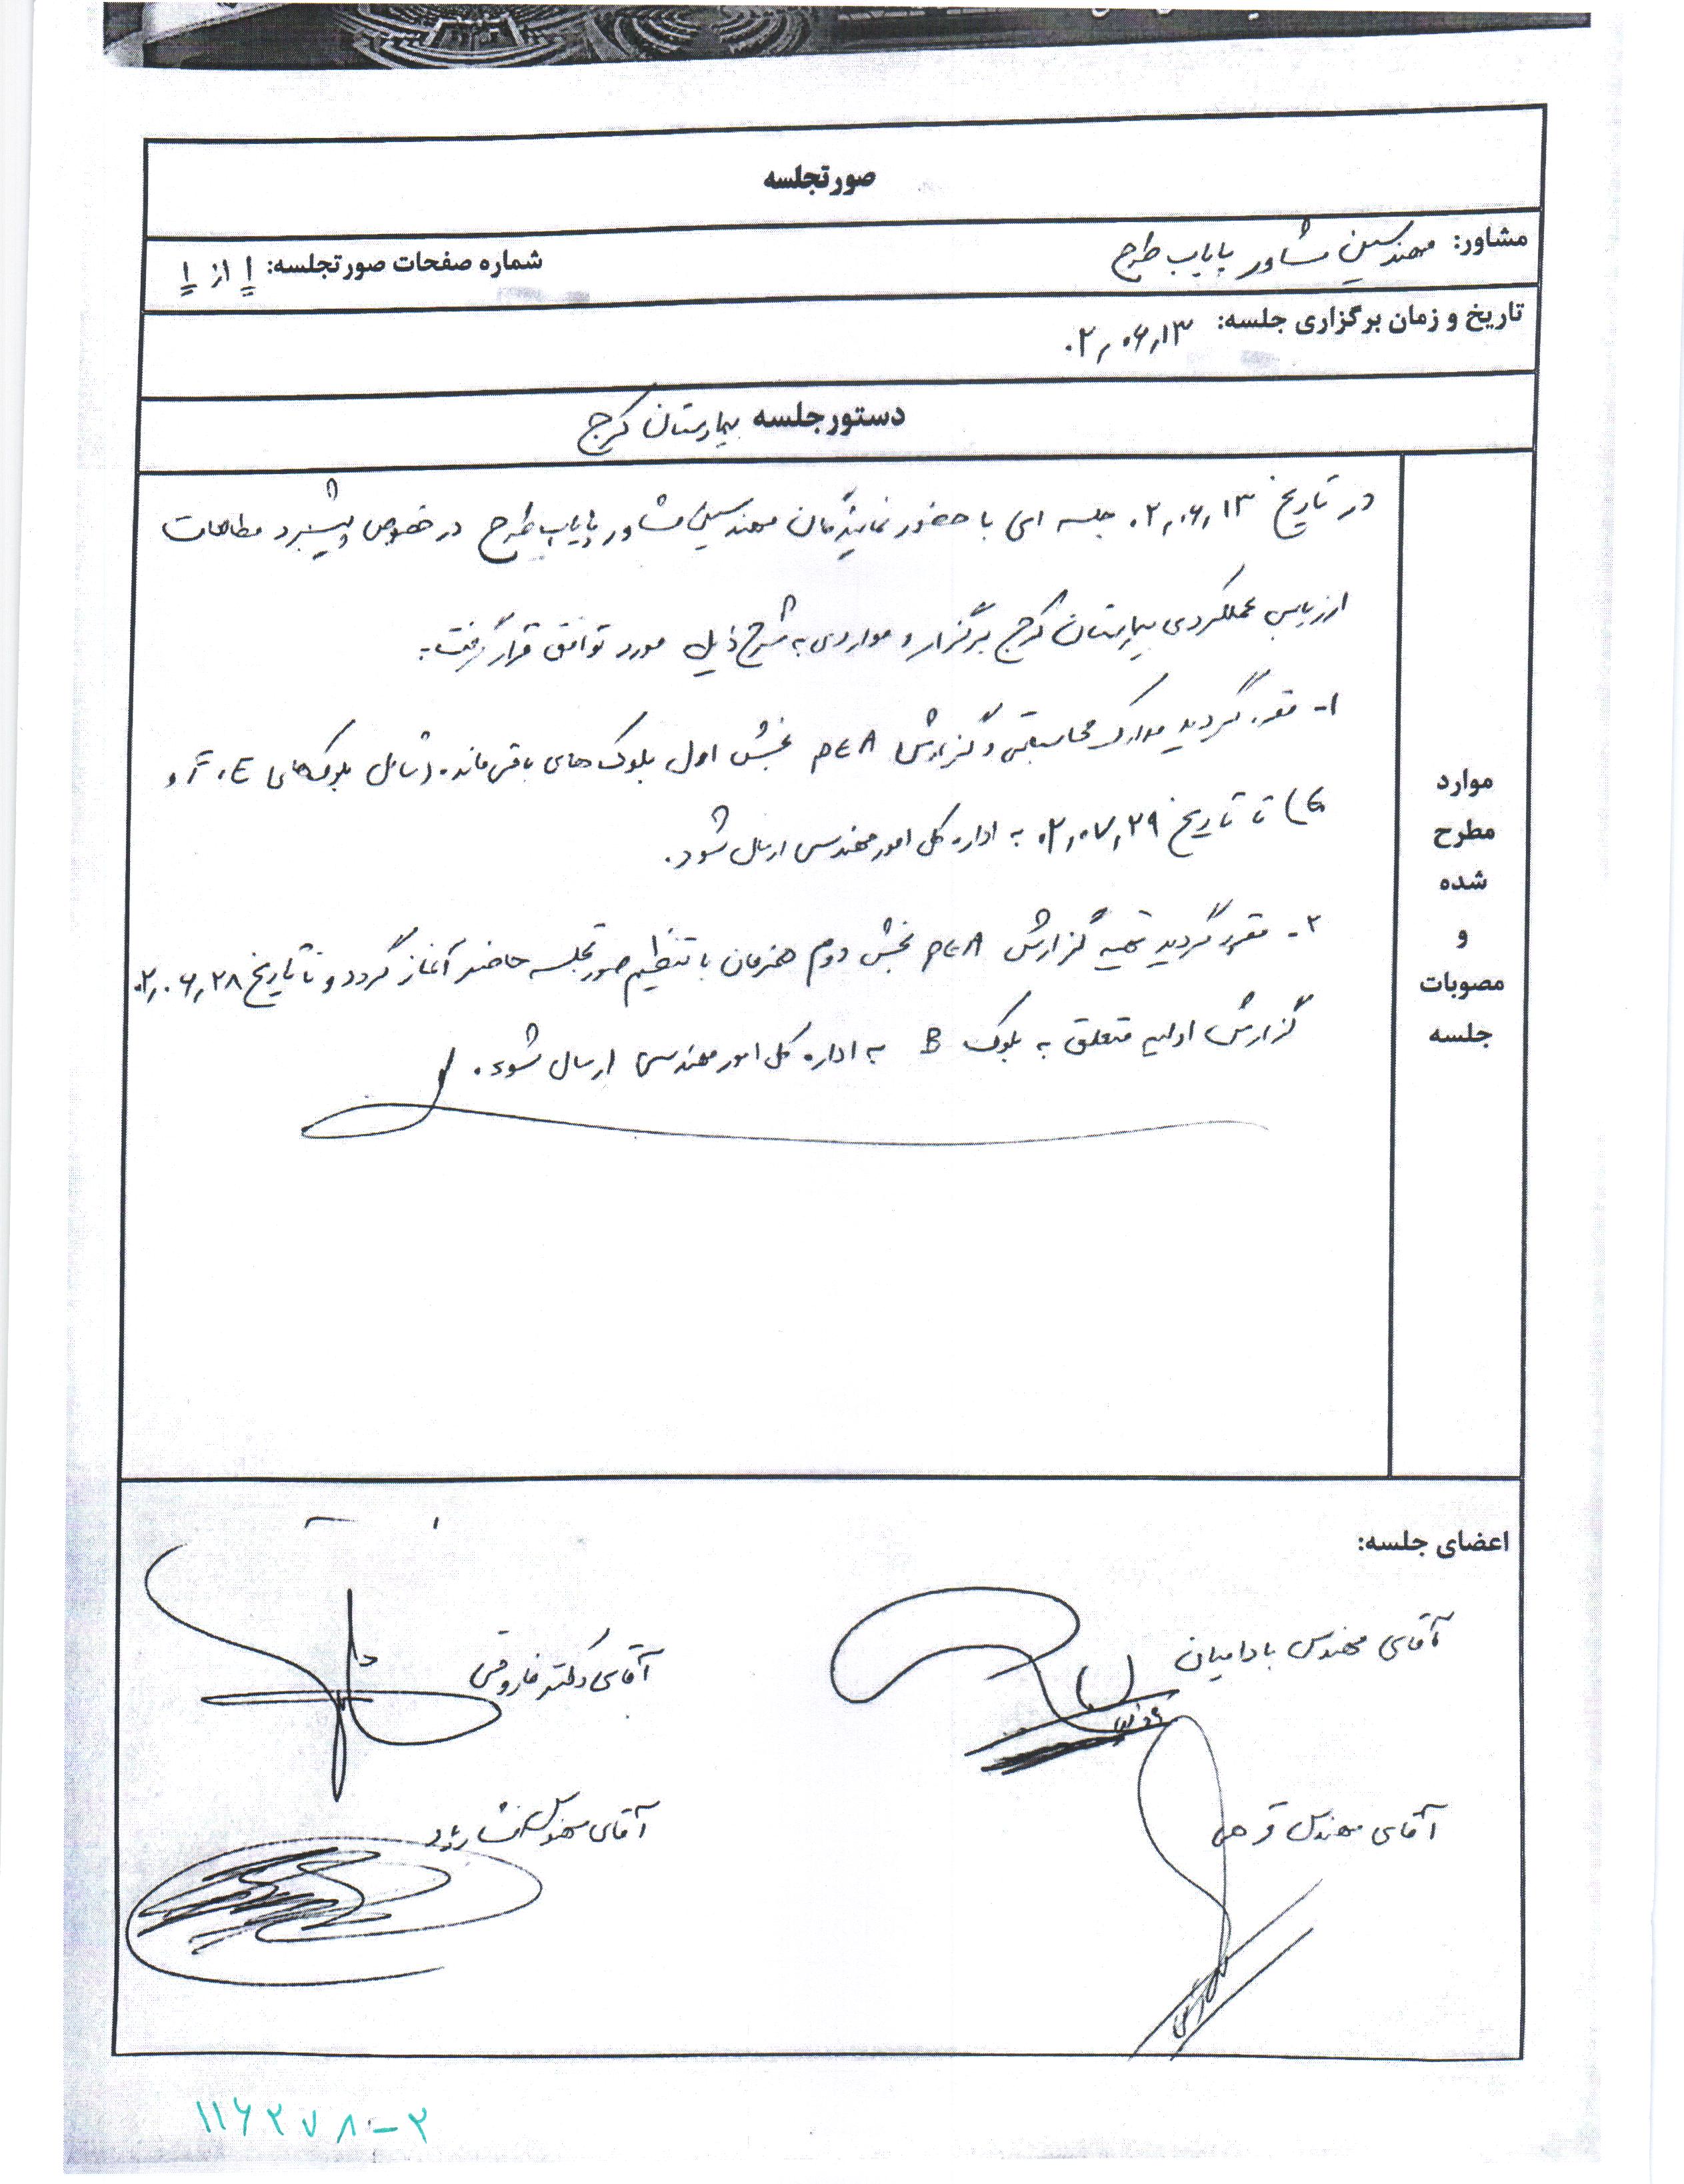 صورتجلسه
مشاور: مهندسین مشاور پایاب طرح
شماره صفحات صورتجلسه: ۱ از ۱
تاریخ و زمان برگزاری جلسه: ۰۲,۰۶,۱۳
دستورجلسه بیمارستان کرج
در تاریخ ۰۲,۰۶,۱۳ جلسه ای با حضور نمایندگان مهندسین مشاور پایاب طرح در خصوص پیشبرد مطالعات
ارزیابی عملکردی بیمارستان کرج برگزار و مواردی به شرح ذیل مورد توافق قرار گرفت:
۱- مقرر گردید مدارک محاسباتی و گزارش PEA بخش اول بلوک های باقی مانده (شامل بلوک های E، و
G) تا تاریخ ۰۲,۰۷,۲۹ به اداره کل امور مهندسی ارسال شود.
۲- مقرر گردید تهیه گزارش PEA بخش دوم همزمان با تنظیم صورتجلسه حاضر آغاز گردد و تا تاریخ ۰۲,۰۶,۲۸
گزارش اولیه متعلق به بلوک B به اداره کل امور مهندسی ارسال شود.
موارد
مطرح
شده
و
مصوبات
جلسه
اعضای جلسه:
آقای مهندس بادامیان
آقای دکتر فاروقی
آقای مهندس قرهی
آقای مهندس افشار
۱۱۶۲۷۸-۲